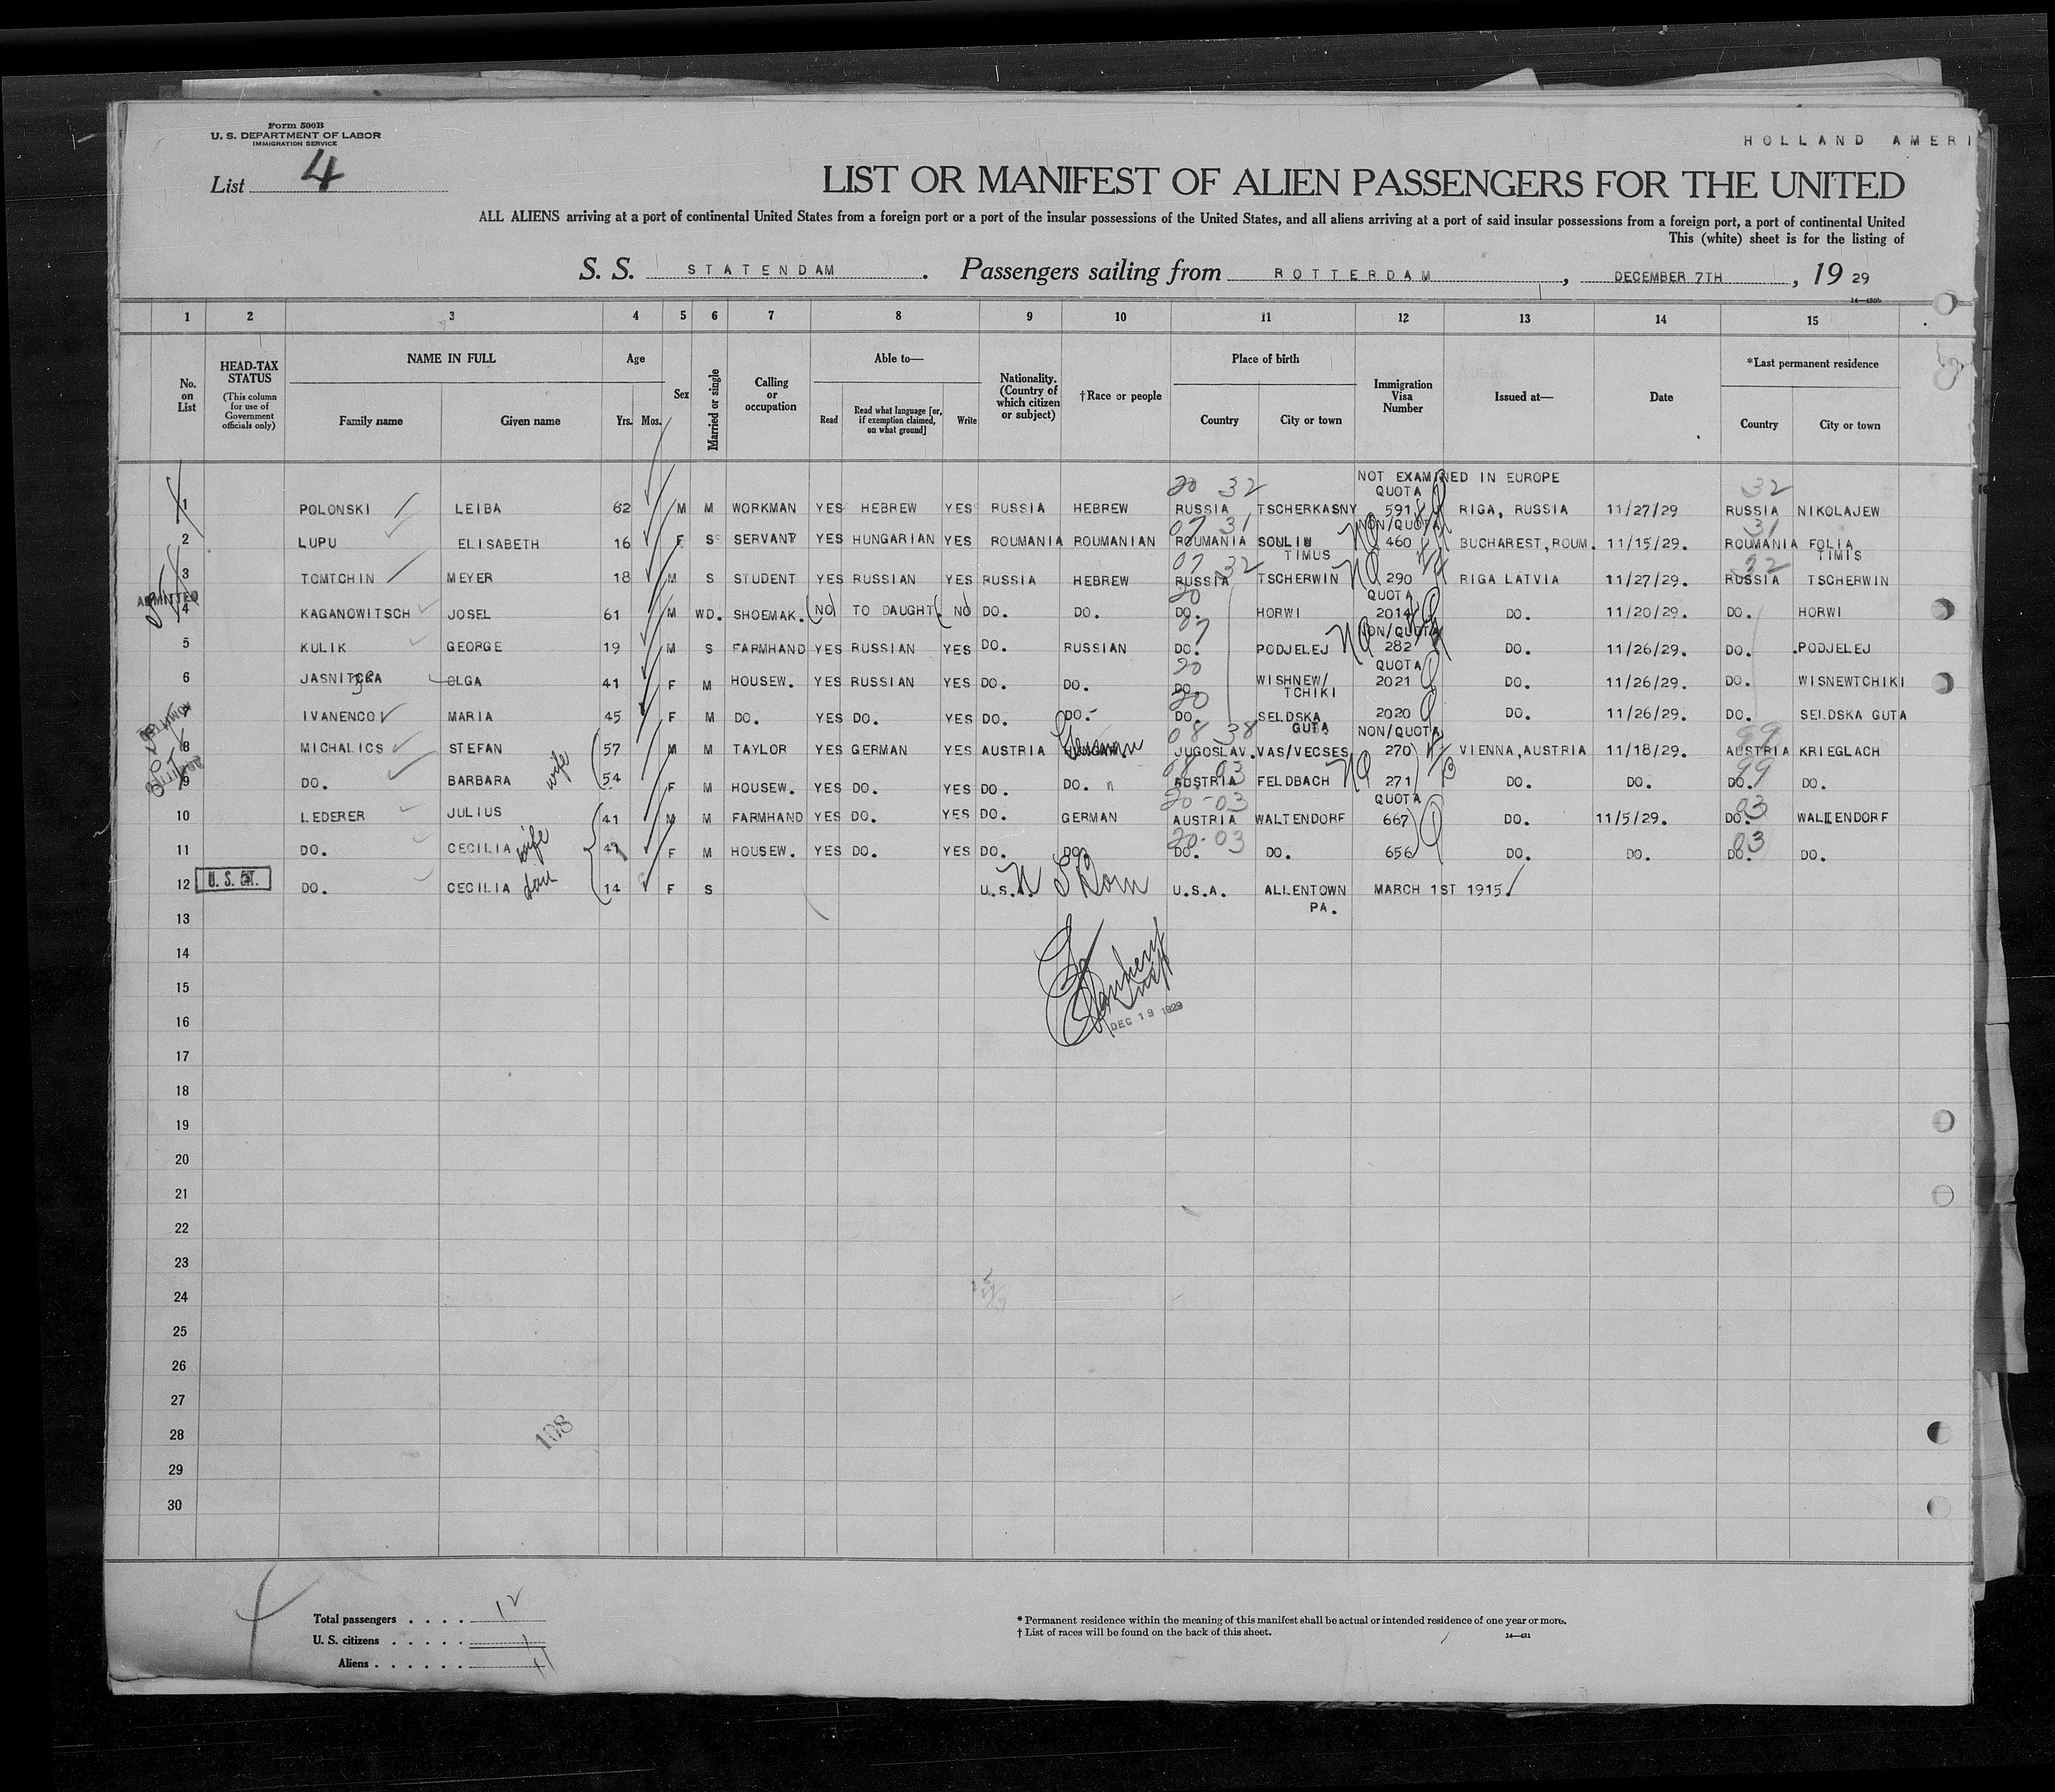 Form 500B
U. S. DEPARTMENT OF LABOR
IMMIGRATION SERVICE
HOLLAND AMERI
List 4
LIST OR MANIFEST OF ALIEN PASSENGERS FOR THE UNITED
ALL ALIENS arriving at a port of continental United States from a foreign port or a port of the insular possessions of the United States, and all aliens arriving at a port of said insular possessions from a foreign port, a port of continental United
This (white) sheet is for the listing of
S. S. STATENDAM. Passengers sailing from ROTTERDAM, DECEMBER 7TH, 19 29
14—430b
1 2 3 4 5 6 7 8 9 10 11 12 13 14 15
No. on List
HEAD-TAX STATUS (This column for use of Government officials only)
NAME IN FULL Family name Given name
Age Yrs. Mos.
Sex
Married or single
Calling or occupation
Able to— Read Read what language [or, if exemption claimed, on what ground] Write
Nationality. (Country of which citizen or subject)
†Race or people
Place of birth Country City or town
Immigration Visa Number
Issued at—
Date
*Last permanent residence Country City or town
NOT EXAMINED IN EUROPE
20 32 QUOTA 32
1 POLONSKI LEIBA 62 M M WORKMAN YES HEBREW YES RUSSIA HEBREW RUSSIA TSCHERKASNY 591 RIGA, RUSSIA 11/27/29 RUSSIA NIKOLAJEW
07 31 NON/QUOTA 31
2 LUPU ELISABETH 16 F S SERVANT YES HUNGARIAN YES ROUMANIA ROUMANIAN ROUMANIA SOULIU TIMUS NQ 460 BUCHAREST, ROUM. 11/15/29. ROUMANIA FOLIA TIMIS
07 32 32
3 TOMTCHIN MEYER 18 M S STUDENT YES RUSSIAN YES RUSSIA HEBREW RUSSIA TSCHERWIN NQ 290 RIGA LATVIA 11/27/29. RUSSIA TSCHERWIN
ADMITTED
20 QUOTA
4 KAGANOWITSCH JOSEL 61 M WD. SHOEMAK. (NO) TO DAUGHT. NO DO. DO. DO. HORWI 2014 DO. 11/20/29. DO. HORWI
7 NON/QUOTA
5 KULIK GEORGE 19 M S FARMHAND YES RUSSIAN YES DO. RUSSIAN DO. PODJELEJ NQ 282 DO. 11/26/29. DO. PODJELEJ
20 QUOTA
6 JASNITCKA OLGA 41 F M HOUSEW. YES RUSSIAN YES DO. DO. DO. WISHNEW/TCHIKI 2021 DO. 11/26/29. DO. WISNEWTCHIKI
20
7 IVANENCO MARIA 45 F M DO. YES DO. YES DO. DO. DO. SELDSKA GUTA 2020 DO. 11/26/29. DO. SELDSKA GUTA
ADMITTED
08 38 NON/QUOTA 99
8 MICHALICS STEFAN 57 M M TAYLOR YES GERMAN YES AUSTRIA German JUGOSLAV. VAS/VECSES 270 VIENNA, AUSTRIA 11/18/29. AUSTRIA KRIEGLACH
ADMITTED
08 03 99
9 DO. BARBARA wife 54 F M HOUSEW. YES DO. YES DO. DO. n AUSTRIA FELDBACH NQ 271 DO. DO. DO. DO.
20-03 QUOTA 03
10 LEDERER JULIUS 41 M M FARMHAND YES DO. YES DO. GERMAN AUSTRIA WALTENDORF 667 DO. 11/5/29. DO. WALTENDORF
20-03 03
11 DO. CECILIA wife F M HOUSEW. YES DO. YES DO. DO. DO. DO. 656 DO. DO. DO. DO.
12 U. S. CIT. DO. CECILIA dau 14 F S U.S.A. U S Born U.S.A. ALLENTOWN PA. MARCH 1ST 1915.
13
14
15
16
DEC 19 1929
17
18
19
20
21
22
23
24
25
26
27
28
108
29
30
Total passengers . . . . 12
U. S. citizens . . . . . 1
Aliens . . . . . . 11
* Permanent residence within the meaning of this manifest shall be actual or intended residence of one year or more.
† List of races will be found on the back of this sheet.
14—431